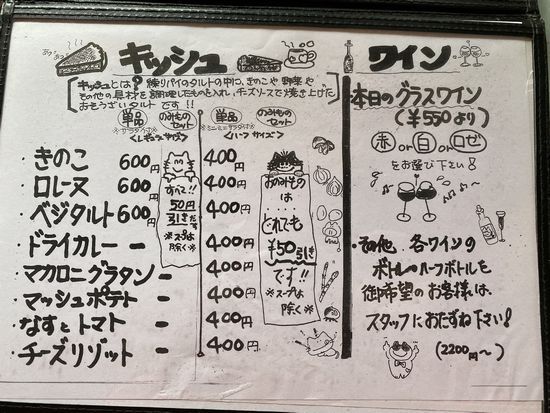 あつあつ
キッシュ
キッシュとは? 練りパイのタルトの中に、きのこや野菜や
その他の具材を調理したものを入れ、チーズソースで焼き上げた
おそうざいタルトです!!
単品 のみものセット
<レギュラーサイズ>
・きのこ 600円
・ロレーヌ 600円
・ベジタルト 600円
・ドライカレー ー
・マカロニグラタン ー
・マッシュポテト ー
・なすとトマト ー
・チーズリゾット ー
すべて!!
50円
引きです
※スープは
除く※
単品 のみものセット
※ミニミニサラダ付※
<ハーフサイズ>
400円
400円
400円
400円
400円
400円
400円
400円
おのみもの
は
....
どれでも
¥50引き
です!!
※スープは
除く※
ワイン
本日のグラスワイン
(¥550より)
赤 or 白 or ロゼ
をお選び下さい!
・その他、各ワインの
ボトル・ハーフボトルを
御希望のお客様は、
スタッフにおたずね下さい!
(2200円〜)